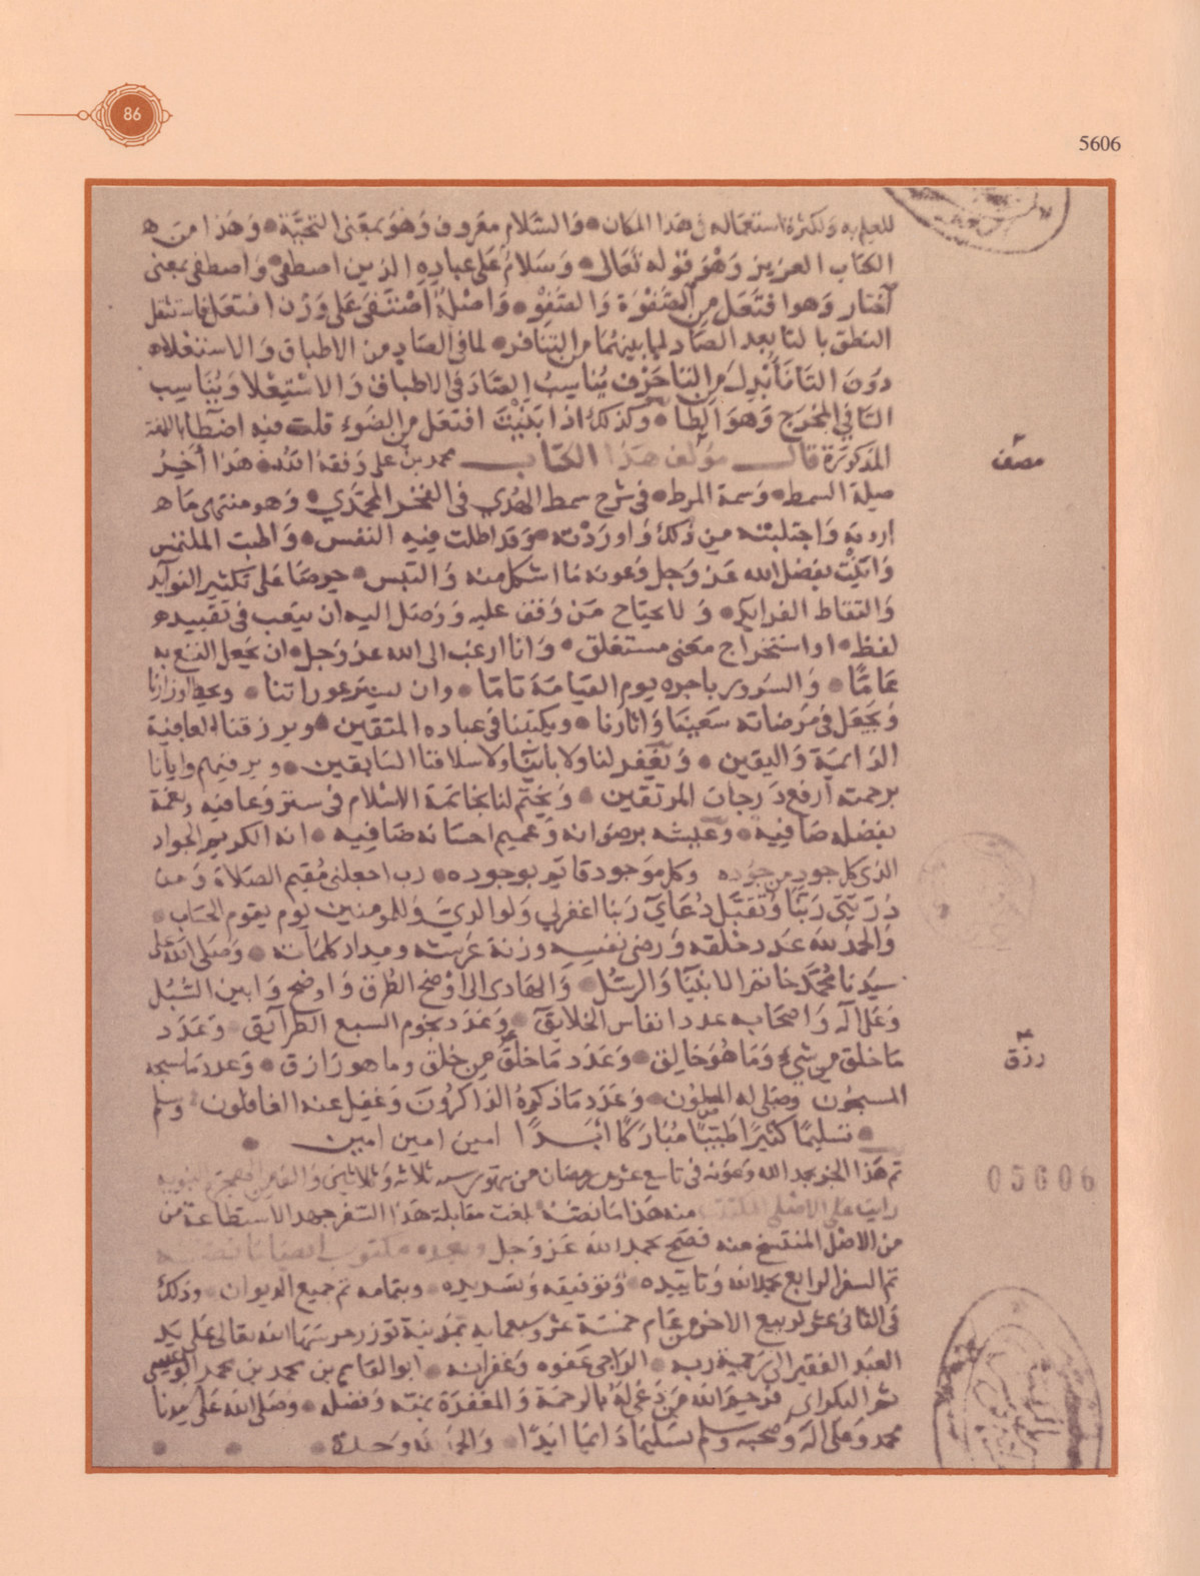 86
5606
للعلم به ولكثرة استعماله في هذا المكان • والسلام معروف وهو بمعنى التحية • وهذا من
الكتاب العزيز وهو قوله تعالى • وسلام على عباده الذين اصطفى • واصطفى بمعنى
اختار وهو افتعل من الصفوة والصفو • واصله اصتفى على وزن افتعل فاستثقل
النطق بالتا بعد الصاد لما بينهما من التنافر • لما في الصاد من الاطباق والاستعلاء
دون التا فأبدل من التا حرف يناسب الصاد في الاطباق والاستعلا ويناسب
التا في المخرج وهو الطا • وكذلك اذا بنيت افتعل من الضوء قلت فيه اضطا باللغة
المذكورة قال مؤلف هذا الكتاب محمد بن علي وفقه الله • هذا أخير
مصف
صلة السمط • وسمة المرط • في شرح سمط الهدي في الفخر المحمدي • وهو منتهى ما
اردته واجتلبته من ذلك واوردته • وقد اطلت فيه النفس • واطبت الملتمس
وابنت بفضل الله عز وجل وعونه ما اشكل منه والتبس • حرصا على تكثير الفوايد
والتقاط الفرايد • ولا يحتاج من وقف عليه ووصل اليه ان يتعب في تقييد
لفظ • او استخراج معنى مستغلق • وانا ارغب الى الله عز وجل • ان يجعل النفع به
عامًّا • والسرور باجره يوم القيامة تاما • وان يستر عوراتنا • ويحط اوزارنا
ويجعل في مرضاته سعينا واثارنا • ويكتبنا في عباده المتقين • ويرزقنا العافية
الدايمة واليقين • ويغفر لنا ولابائنا ولاسلافنا السابقين • ويرقيهم وايانا
برحمته ارفع درجات المرتقين • ويختم لنا بخاتمة الاسلام في ستر وعافية ونعمة
بفضله صافية • وعيشة برضوانه وعميم احسانه ضافية • انه الكريم الجواد
الذي كل جود من جوده وكل موجود قائم بوجوده • رب اجعلني مقيم الصلاة ومن
ذريتي ربنا وتقبل دعاي ربنا اغفر لي ولوالدي وللمومنين يوم يقوم الحساب •
والحمد لله عدد خلقه ورضى نفسه وزنة عرشه ومداد كلماته • وصلى الله على
سيدنا محمد خاتم الانبيا والرسل • والهادي الى أوضح الطرق واوضح وابين السبل
وعلى اله واصحابه عدد انفاس الخلايق • وعدد نجوم السبع الطرايق • وعدد
ما خلق من شيء وما هو خالق • وعدد ما خلق من خلق وما هو رازق • وعدد ما سبحه
رزق
المسبحون وصلى له المصلون • وعدد ما ذكره الذاكرون وغفل عنه الغافلون • وسلم
• تسليما كثيرا طيبا مباركا أبدا امين امين امين •
تم هذا الجزء بحمد الله وعونه في تاسع عشر من رمضان من سنة ثلاثة وثلاثين والف من الهجرة النبوية
05606
رايت على الاصل منه هذا ما نصه بلغت مقابلة هذا السفر جهد الاستطاعة من
من الاصل المنتسخ منه فصح بحمد الله عز وجل وبعده مكتوب ايضا ما نصه
تم السفر الرابع بحمد الله وتاييده • وتوفيقه وتسديده • وبتمامه تم جميع الديوان • وذلك
في الثاني عشر لربيع الاخر من عام خمسة عشر وسبعماية بمدينة توزر حرسها الله تعالى على يد
العبد الفقير الى رحمة ربه • الراجي عفوه وغفرانه • ابو القاسم بن محمد بن محمد
ثم البكراي فرحم الله من دعى له بالرحمة والمغفرة بمنه وفضله • وصلى الله على سيدنا
محمد وعلى اله وصحبه وسلم تسليما دائما ابدا • والحمد لله وحده •